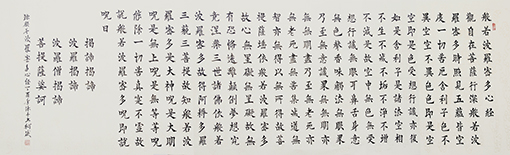 般若波羅蜜多心經
觀自在菩薩行深般若波
羅蜜多時照見五蘊皆空
度一切苦厄舍利子色不
異空空不異色色即是空
空即是色受想行識亦復
如是舍利子是諸法空相
不生不滅不垢不淨不增
不減是故空中無色無受
想行識無眼耳鼻舌身意
無色聲香味觸法無眼界
乃至無意識界無無明亦
無無明盡乃至無老死亦
無老死盡無苦集滅道無
智亦無得以無所得故菩
提薩埵依般若波羅蜜多
故心無罣礙無罣礙故無
有恐怖遠離顛倒夢想究
竟涅槃三世諸佛依般若
波羅蜜多故得阿耨多羅
三藐三菩提故知般若波
羅蜜多是大神呪是大明
呪是無上呪是無等等呪
能除一切苦真實不虛故
說般若波羅蜜多呪即說
呪曰
揭諦揭諦
波羅揭諦
波羅僧揭諦
菩提薩婆訶